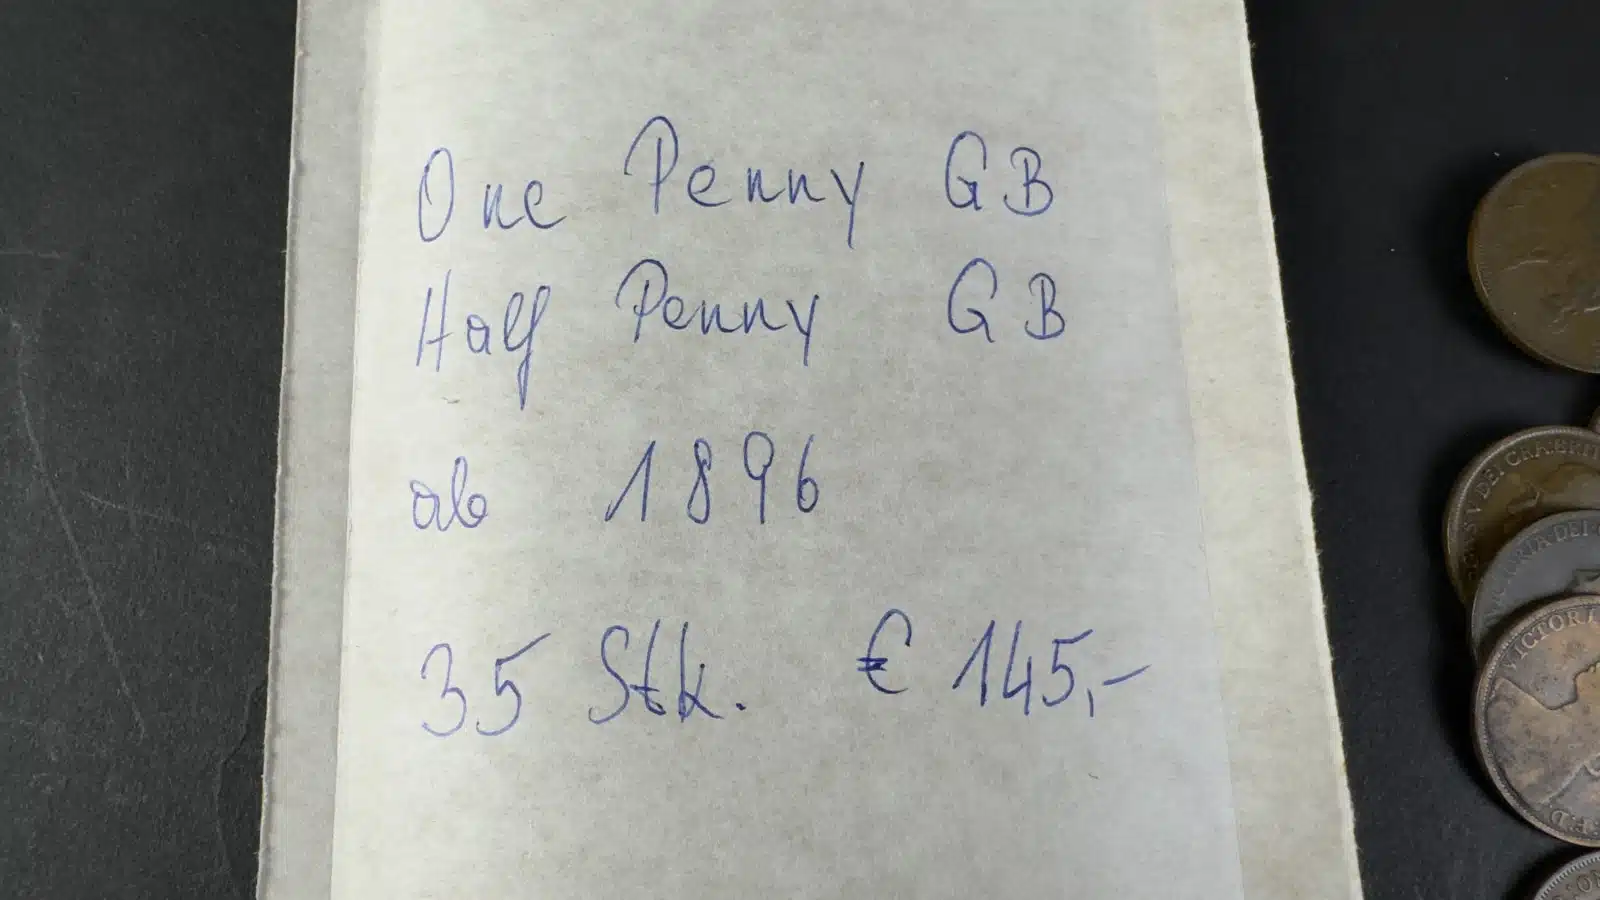 One Penny GB
Half Penny GB
ab 1896
35 Stk. € 145,-
DEI GRA:BRIT
VICTORIA DEI
VICTORI